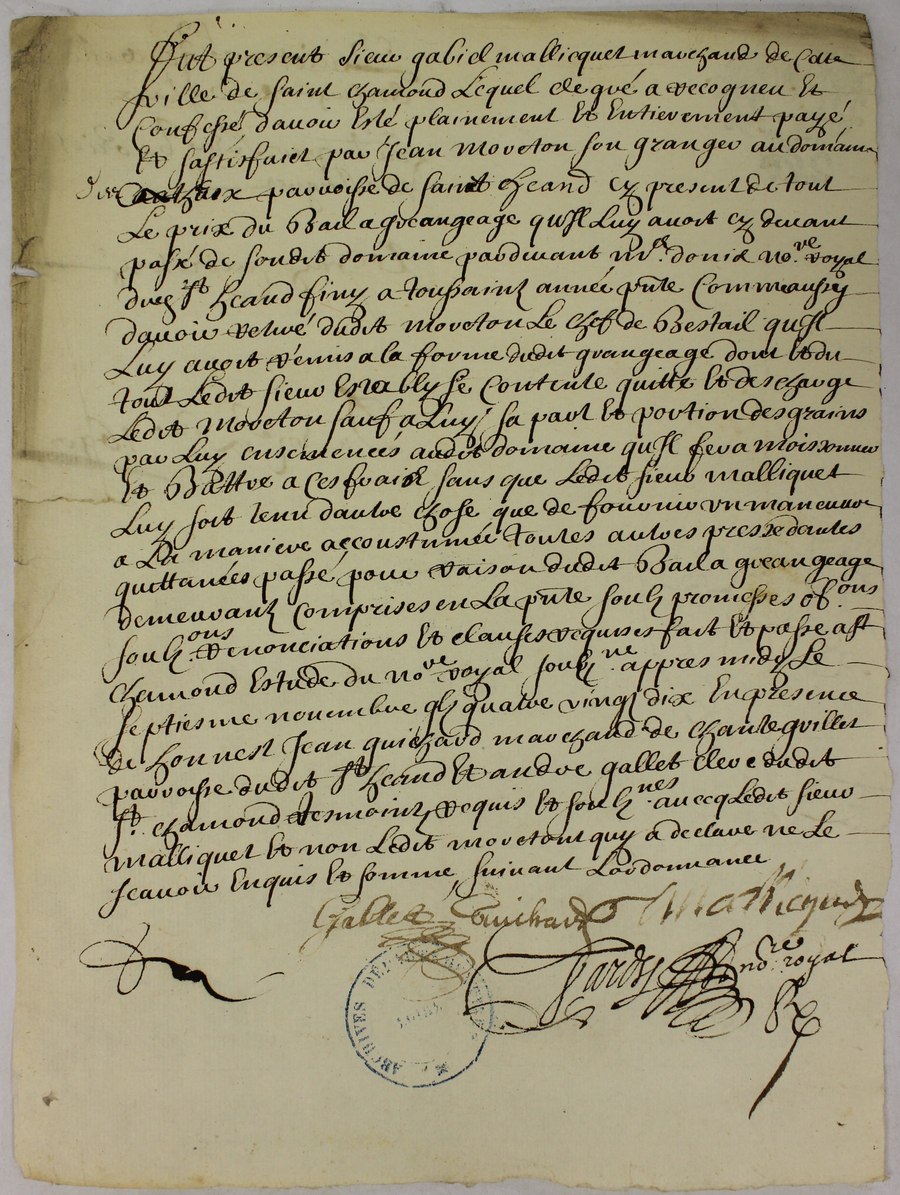 Fut present sieur gabiel mallicquet marchand de cette
ville de saint chamond lequel de gré a recogneu et
Confessé davoir esté plainement et entierement payé
et sastisfaict par Jean moreton son granger au domaine
parroisse de saint heand cy present de tout
Le prix du Bail a grangeage qu'Il Luy avoit cy devant
passé de sondit domaine pardevant me. no.re royal
st heand finy a toussainz année pnte Comm'aussy
davoir retiré dudit moreton Le chef de Bestail qu'Il
Luy avoit remis a la forme dudit grangeage dont et du
tout Ledit sieur estably se contente quitte et descharge
Ledit moreton sauf a Luy sa part et portion des grains
par Luy ensemencés audit domaine qu'Il fera moissonner
et Battre a ces fraix sans que Ledit sieur malliquet
Luy soit tenu dautre chose que de fournir un maneuvre
a La maniere accoustumée toutes autres pressedantes
quittances passé pour raison dudit Bail a grangeage
demeurant comprises en La pnte soubz promesses ob.ons
soubz.ons renonciations et clauses requises fait et passé a st
chamond estude du no.re royal soubz.né appres midy Le
septiesme novembre gbj quatre vingt dix En presence
de honnest Jean guichard marchand de chantegrillet
parroisse dudit st heand et andre gallet clerc dudit
st. chamond tesmoinz requis et soubz.nes avecq Ledit sieur
malliquet et non Ledit moreton quy a declaré ne Le
scavoir Enquis et sommé suivant Lordonnance
Gallet Guichard Mallicquet
no.re royal
ARCHIVES